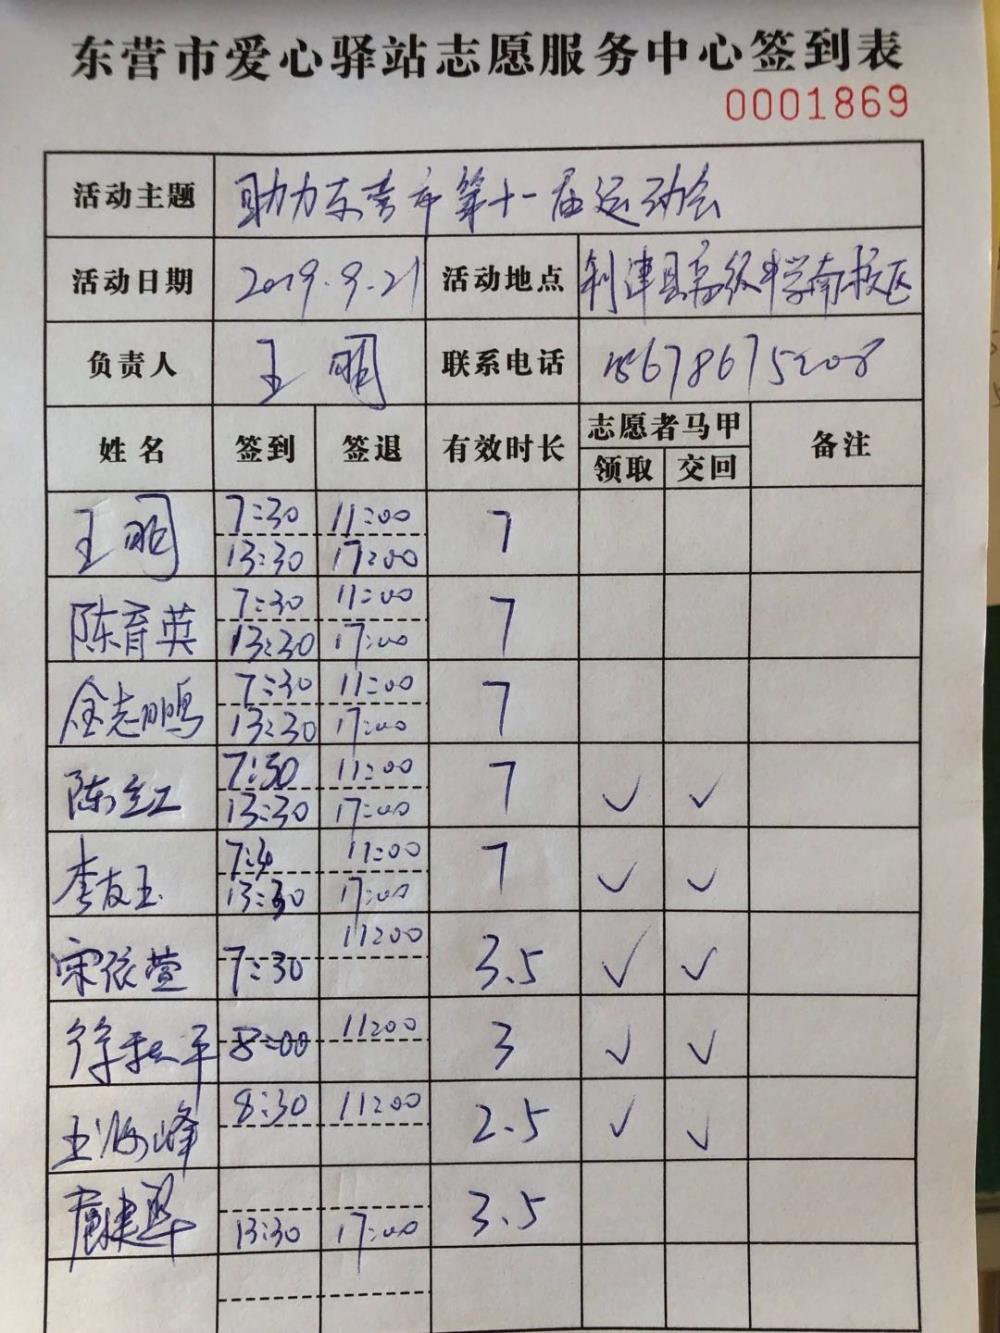 东营市爱心驿站志愿服务中心签到表
0001869
活动主题 助力东营市第十一届运动会
活动日期 2019.9.21 活动地点 利津县高级中学南校区
负责人 王明 联系电话 678675208
姓名 签到 签退 有效时长 志愿者马甲 备注
领取 交回
王明 7:30 11:00 7
13:30 17:00
陈育英 7:30 11:00 7
13:30 17:00
金志鹏 7:30 11:00 7
13:30 17:00
陈红 7:30 11:00 7 ✓ ✓
13:30 17:00
李友玉 7:4 11:00 7 ✓ ✓
13:30 17:00
宋依萱 7:30 11:00 3.5 ✓ ✓
徐 平 8:00 11:00 3 ✓ ✓
王海峰 8:30 11:00 2.5 ✓ ✓
建 13:30 17:00 3.5